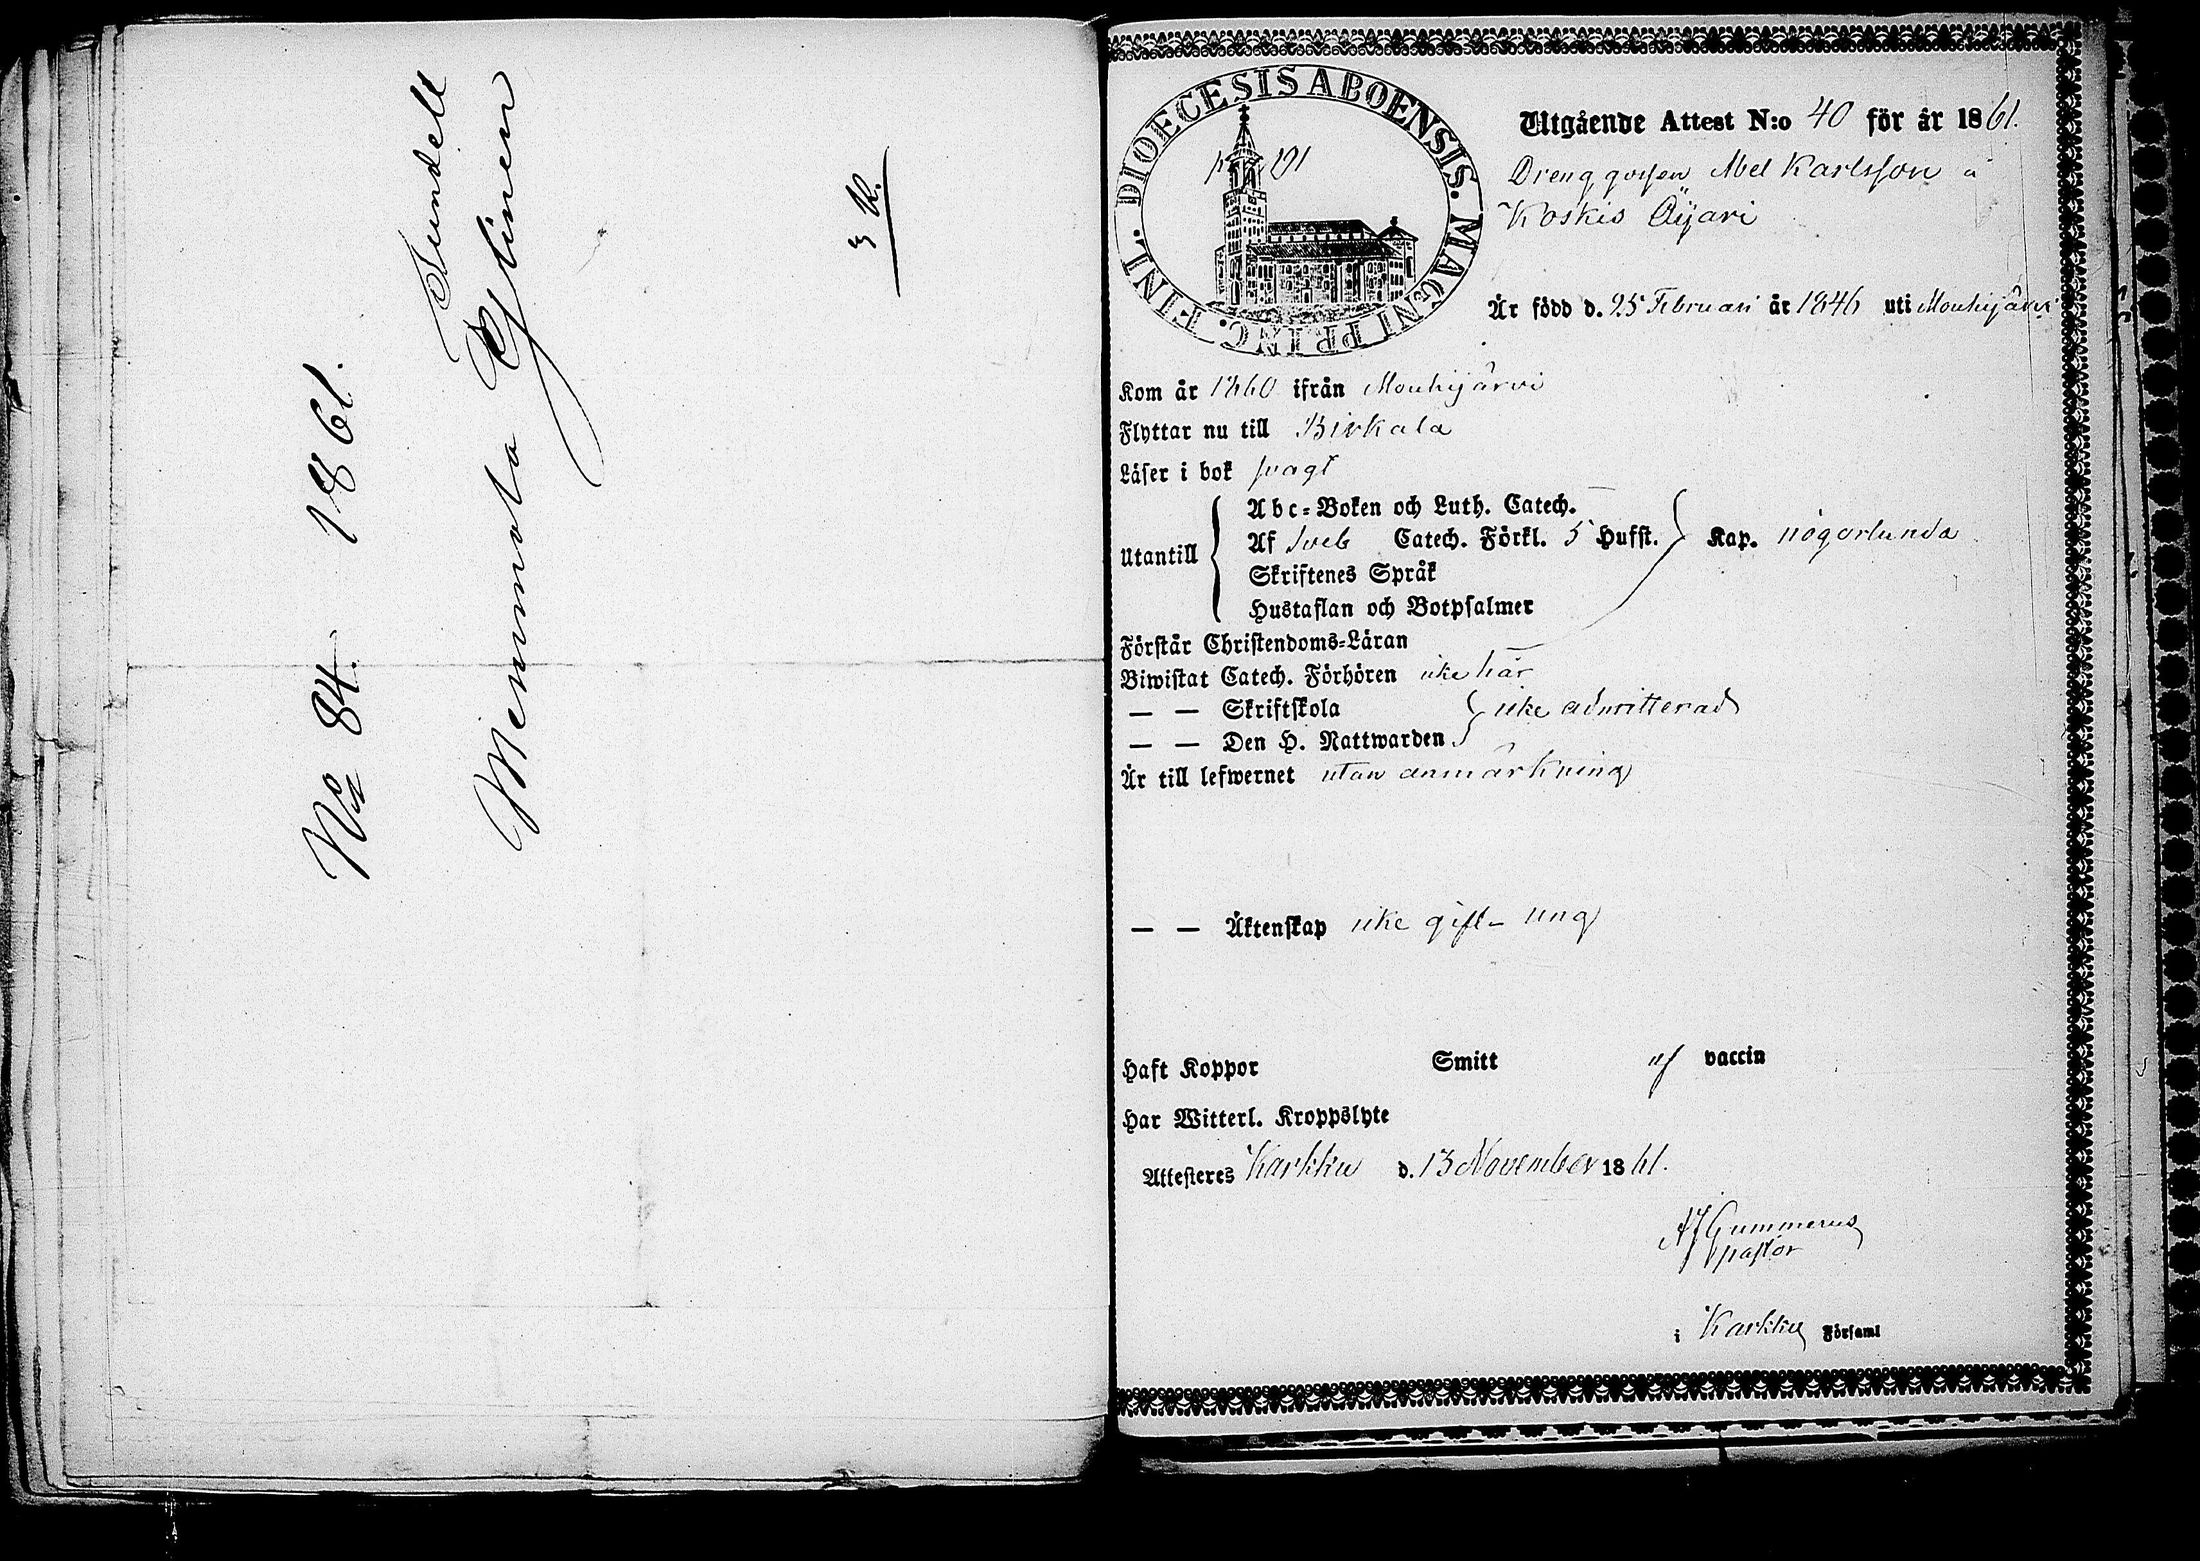 No 84. 1861.
Sundell
Memmola Kytinen
3 K.
DIOECESIS ABOENSIS. MAGNI PRINC. FINL.
Utgående Attest N:o 40 för år 1861.
Drenggossen Abel Karlsson å
Koskis Äijäri
Är född d. 25 Februari år 1846 uti Mouhijärvi
Kom år 1860 ifrån Mouhijärvi
Flyttar nu till Birkala
Läser i bok svagt
Utantill
Abc-Boken och Luth. Catech.
Af Sveb Catech. Förkl. 5 Hufst. Kap. någorlunda
Skriftenes Språk
Hustaflan och Botpsalmer
Förstår Christendoms-Läran
Biwistat Catech. Förhören icke här
— — Skriftskola icke admitterad
— — Den H. Nattwarden
Är till lefwernet utan anmärkning
— — Äktenskap icke gift - ung
Haft Koppor Smitt af vaccin
Har Witterl. Kroppslyte
Attesteres Karkku d. 13 November 1861.
A J Gummerus
pastor
i Karkku Församl